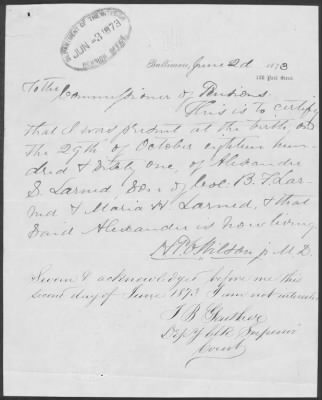 DEPARTMENT OF THE INTERIOR
JUN -3 1873
PENSION OFFICE
Baltimore, June 2d 1873
To the
Commissioner of Pensions.
This is to certify
that I was present at the birth, on
the 29th of October eighteen hun-
dred & sixty one, of Alexander
S. Larned Son of Col. B. F. Lar-
ned & Maria H Larned, & that
said Alexander is now living
Wilson jr M. D.
Sworn & acknowledged before me this
second day of June 1873 I am not interested
J B
Dep'y Clk Superior
Court